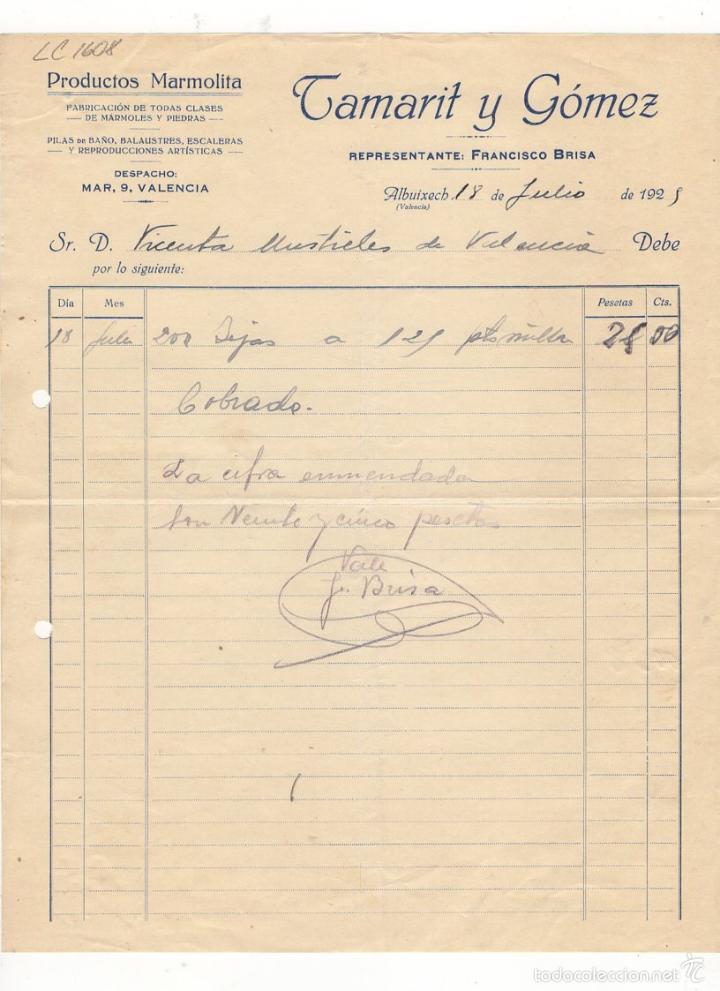 LC 1608
Productos Marmolita
FABRICACIÓN DE TODAS CLASES
DE MÁRMOLES Y PIEDRAS
PILAS DE BAÑO, BALAUSTRES, ESCALERAS
Y REPRODUCCIONES ARTÍSTICAS
DESPACHO:
MAR, 9, VALENCIA
Tamarit y Gómez
REPRESENTANTE: FRANCISCO BRISA
Albuixech 18 de Julio de 1925
(Valencia)
Sr. D. Vicenta Mustieles de Valencia Debe
por lo siguiente:
Día Mes Pesetas Cts.
18 Julio 200 Tejas a 125 pts millar 25 00
Cobrado.
La cifra enmendada
son Veinte y cinco pesetas
Vale
F. Brisa
todocoleccion.net